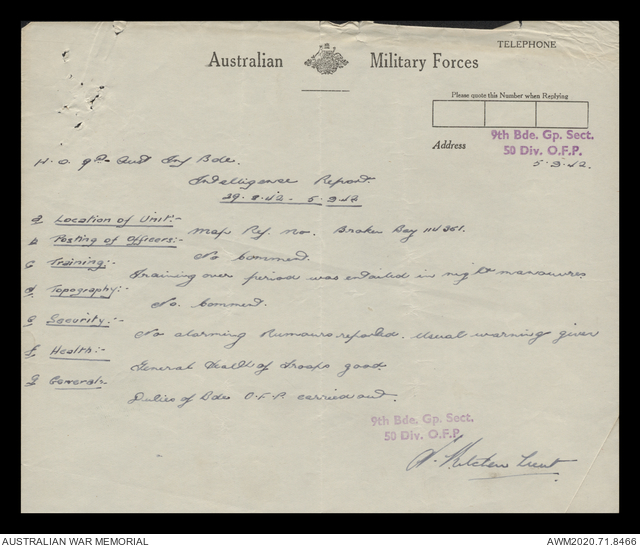 TELEPHONE
Australian Military Forces
Please quote this Number when Replying
Address
9th Bde. Gp. Sect.
50 Div. O.F.P.
5.9.42.
H.Q. 9th Aust Inf Bde.
Intelligence Report.
29.8.42 - 5.9.42
a Location of Unit:-
Map Ref. no. Broken Bay 114361.
b Posting of Officers:-
No Comment.
c Training:-
Training over period was entailed in night manouvres
d Topography:-
No. Comment.
e Security:-
No alarming Rumours reported. Usual warning given
f Health:-
General Health of Troops good
g General-
Duties of Bde O.F.P. carried out.
9th Bde. Gp. Sect.
50 Div. O.F.P.
Lieut
AUSTRALIAN WAR MEMORIAL
AWM2020.71.8466